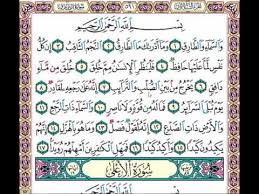 بِسْمِ ٱللَّهِ ٱلرَّحْمَٰنِ ٱلرَّحِيمِ
وَٱلسَّمَآءِ وَٱلطَّارِقِ ١ وَمَآ أَدْرَىٰكَ مَا ٱلطَّارِقُ ٢ ٱلنَّجْمُ ٱلثَّاقِبُ ٣ إِن كُلُّ
نَفْسٍ لَّمَّا عَلَيْهَا حَافِظٌ ٤ فَلْيَنظُرِ ٱلْإِنسَٰنُ مِمَّ خُلِقَ ٥ خُلِقَ مِن مَّآءٍ
دَافِقٍ ٦ يَخْرُجُ مِنۢ بَيْنِ ٱلصُّلْبِ وَٱلتَّرَآئِبِ ٧ إِنَّهُۥ عَلَىٰ رَجْعِهِۦ لَقَادِرٌ ٨
يَوْمَ تُبْلَى ٱلسَّرَآئِرُ ٩ فَمَا لَهُۥ مِن قُوَّةٍ وَلَا نَاصِرٍ ١٠ وَٱلسَّمَآءِ ذَاتِ ٱلرَّجْعِ ١١
وَٱلْأَرْضِ ذَاتِ ٱلصَّدْعِ ١٢ إِنَّهُۥ لَقَوْلٌ فَصْلٌ ١٣ وَمَا هُوَ بِٱلْهَزْلِ ١٤ إِنَّهُمْ
يَكِيدُونَ كَيْدًا ١٥ وَأَكِيدُ كَيْدًا ١٦ فَمَهِّلِ ٱلْكَٰفِرِينَ أَمْهِلْهُمْ رُوَيْدًۢا ١٧
سُورَةُ الأَعْلَى